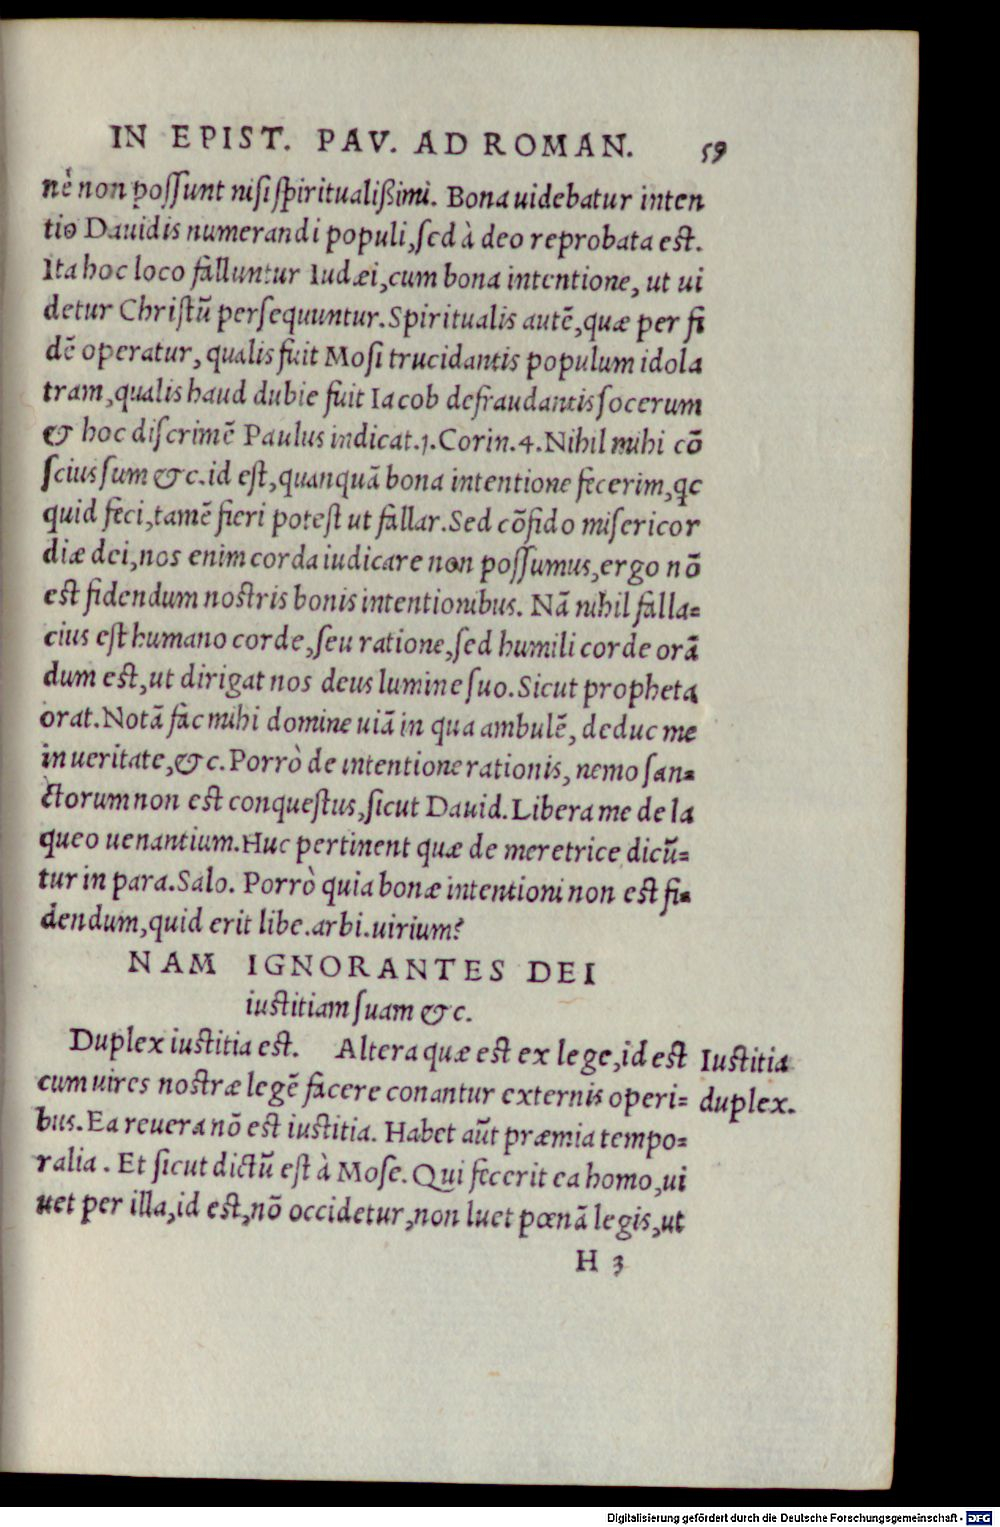 IN EPIST. PAV. AD ROMAN. 59
nē non possunt nisi spiritualißimi. Bona uidebatur inten
tio Dauidis numerandi populi, sed à deo reprobata est.
Ita hoc loco falluntur Iudæi, cum bona intentione, ut ui
detur Christū persequuntur. Spiritualis autē, quæ per fi
dē operatur, qualis fuit Mosi trucidantis populum idola
tram, qualis haud dubie fuit Iacob defraudantis socerum
& hoc discrimē Paulus indicat. 1. Corin. 4. Nihil mihi cō
scius sum &c. id est, quanquā bona intentione fecerim, qc
quid feci, tamē fieri potest ut fallar. Sed cōfido misericor
diæ dei, nos enim corda iudicare non possumus, ergo nō
est fidendum nostris bonis intentionibus. Nā nihil falla=
cius est humano corde, seu ratione, sed humili corde orā
dum est, ut dirigat nos deus lumine suo. Sicut propheta
orat. Notā fac mihi domine uiā in qua ambulē, deduc me
in ueritate, &c. Porrò de intentione rationis, nemo san=
ctorum non est conquestus, sicut Dauid. Libera me de la
queo uenantium. Huc pertinent quæ de meretrice dicū=
tur in para. Salo. Porrò quia bonæ intentioni non est fi=
dendum, quid erit libe. arbi. uirium?
NAM IGNORANTES DEI
iustitiam suam &c.
Duplex iustitia est. Altera quæ est ex lege, id est
Iustitia
duplex.
cum uires nostræ legē facere conantur externis operi=
bus. Ea reuera nō est iustitia. Habet aūt præmia tempo=
ralia. Et sicut dictū est à Mose. Qui fecerit ea homo, ui
uet per illa, id est, nō occidetur, non luet pœnā legis, ut
H 3
Digitalisierung gefördert durch die Deutsche Forschungsgemeinschaft - DFG